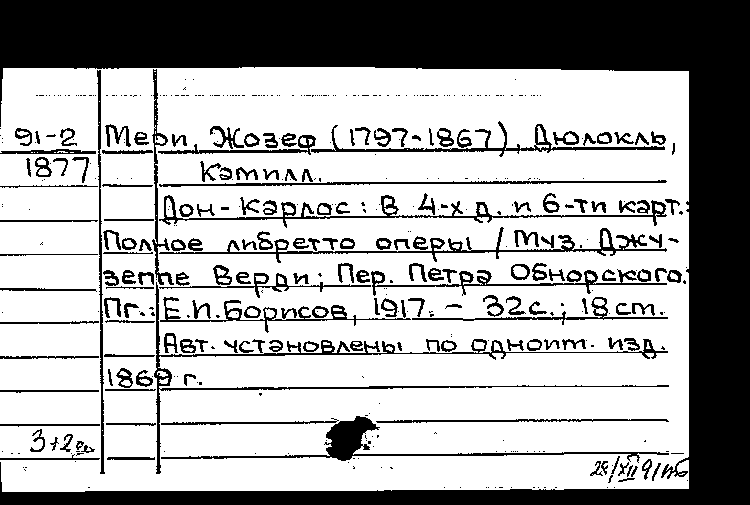 91-2 Мери, Жозеф (1797-1867), Дюлокль,
1877 Камилл.
Дон-Карлос: В 4-х д. и 6-ти карт.:
Полное либретто оперы / Муз. Джу-
зеппе Верди; Пер. Петра Обнорского.
Пг.: Е.И.Борисов, 1917. - 32с.; 18 см.
Авт. установлены по одноим. изд.
1869 г.
3+2
28/XII 91